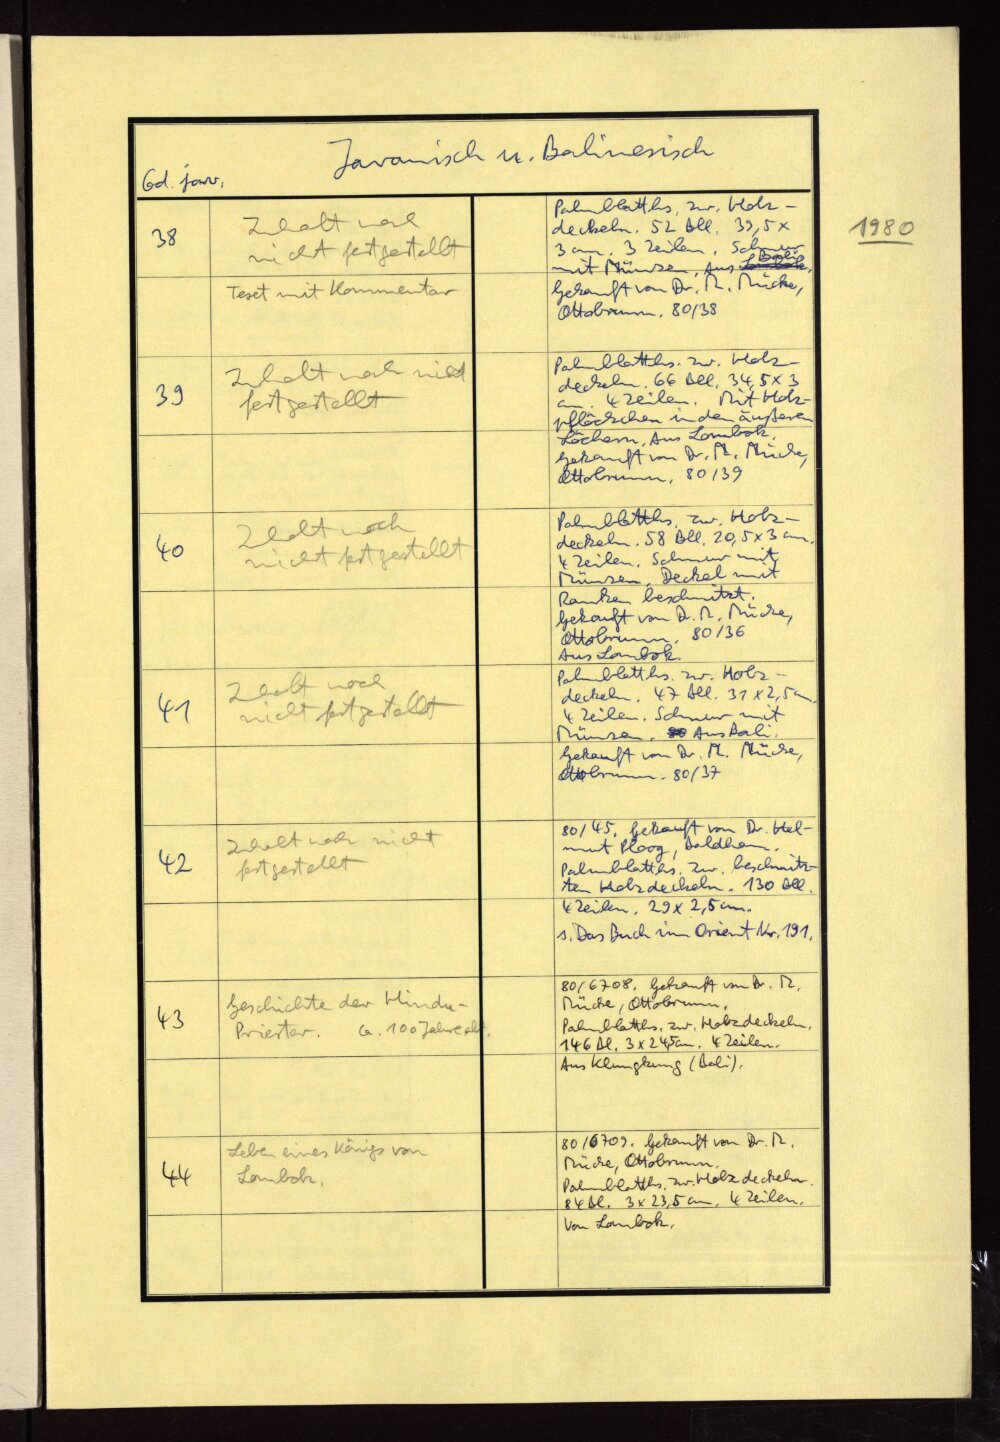 Javanisch u. Balinesisch
Cod. jav.
1980
38
Inhalt noch
nicht festgestellt
Text mit Kommentar
Palmblatths. zw. Holz-
deckeln. 52 Bll. 39,5 x
3 cm. 3 Zeilen. Schnur
mit Münzen. Aus Lombok. Bali
Gekauft von Dr. M. Mücke,
Ottobrunn. 80/38
39
Inhalt noch nicht
festgestellt
Palmblatths. zw. Holz-
deckeln. 66 Bll. 34,5 x 3
cm. 4 Zeilen. Mit Holz-
pflöckchen in den äußeren
Löchern. Aus Lombok.
Gekauft von Dr. M. Mücke,
Ottobrunn. 80/39
40
Inhalt noch
nicht festgestellt
Palmblatths. zw. Holz-
deckeln. 58 Bll. 20,5 x 3 cm.
4 Zeilen. Schnur mit
Münzen. Deckel mit
Ranken beschnitzt.
Gekauft von Dr. M. Mücke,
Ottobrunn. 80/36
Aus Lombok.
41
Inhalt noch
nicht festgestellt
Palmblatths. zw. Holz-
deckeln. 47 Bll. 31 x 2,5 cm.
4 Zeilen. Schnur mit
Münzen. Aus Bali.
Gekauft von Dr. M. Mücke,
Ottobrunn. 80/37
42
Inhalt noch nicht
festgestellt
80/45. Gekauft von Dr. Hel-
mut Ploog, Baldham.
Palmblatths. zw. beschnitz-
ten Holzdeckeln. 130 Bll.
4 Zeilen. 29 x 2,5 cm.
s. Das Buch im Orient Nr. 191.
43
Geschichte der Hindu-
Priester. Ca. 100 Jahre alt.
80/6708. Gekauft von Dr. M.
Mücke, Ottobrunn.
Palmblatths. zw. Holzdeckeln.
146 Bl. 3 x 24,5 cm. 4 Zeilen.
Aus Klungkung (Bali).
44
Leben eines Königs von
Lombok.
80/6709. Gekauft von Dr. M.
Mücke, Ottobrunn.
Palmblatths. zw. Holzdeckeln.
84 Bl. 3 x 23,5 cm. 4 Zeilen.
Von Lombok.